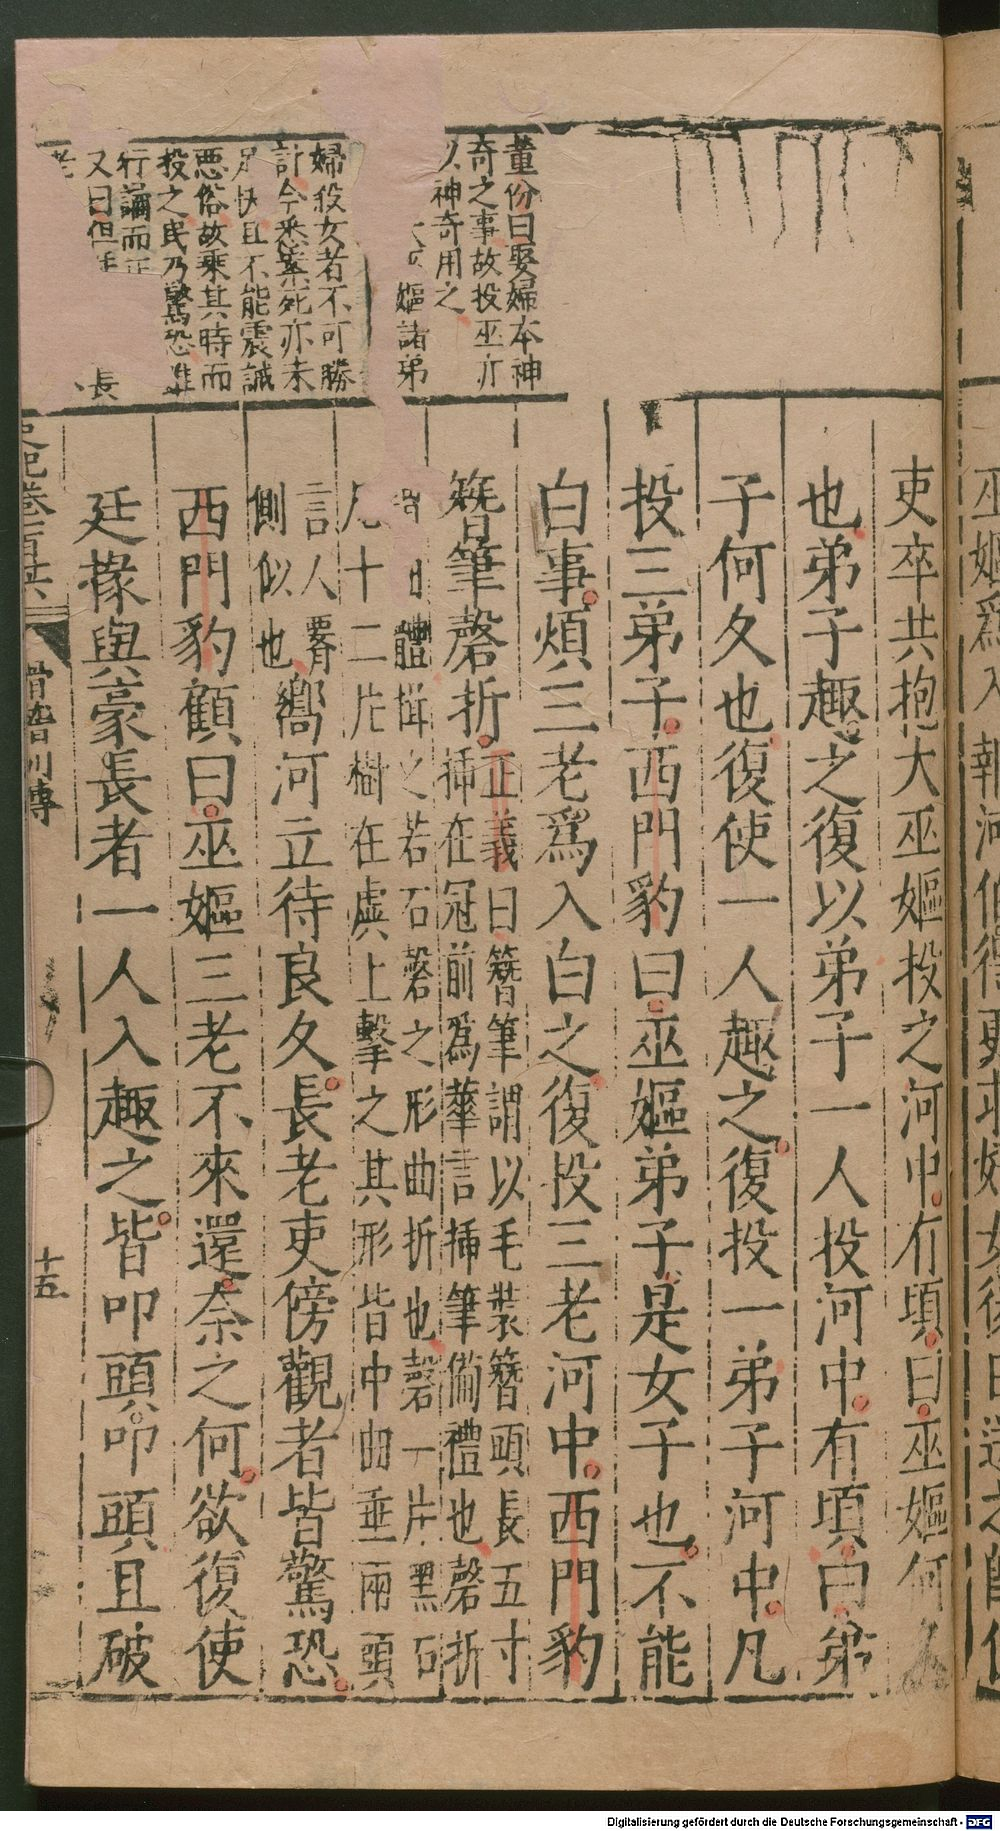 董份曰娶婦本神
奇之事故投巫亦
以神奇用之
嫗諸弟
婦投女者不可勝
計今悉案死亦未
足快且不能震誡
惡俗故乘其時而
投之民乃驚恐
行誦而
又曰但
長
老
吏卒共抱大巫嫗投之河中有頃曰巫嫗何久
也弟子趣之復以弟子一人投河中有頃曰弟
子何久也復使一人趣之復投一弟子河中凡
投三弟子西門豹曰巫嫗弟子是女子也不能
白事煩三老爲入白之復投三老河中西門豹
簪筆磬折正義曰簪筆謂以毛裝簪頭長五寸
插在冠前爲蓽言插筆備禮也磬折
體揖之若石磬之形曲折也磬一片黑石
凡十二片樹在虡上擊之其形皆中曲垂兩頭
言人䏿
側似也
嚮河立待良久長老吏傍觀者皆驚恐
西門豹顧曰巫嫗三老不來還奈之何欲復使
廷掾與豪長者一人入趣之皆叩頭叩頭且破
史記卷一百廿六
滑稽列傳
十五
Digitalisierung gefördert durch die Deutsche Forschungsgemeinschaft - DFG